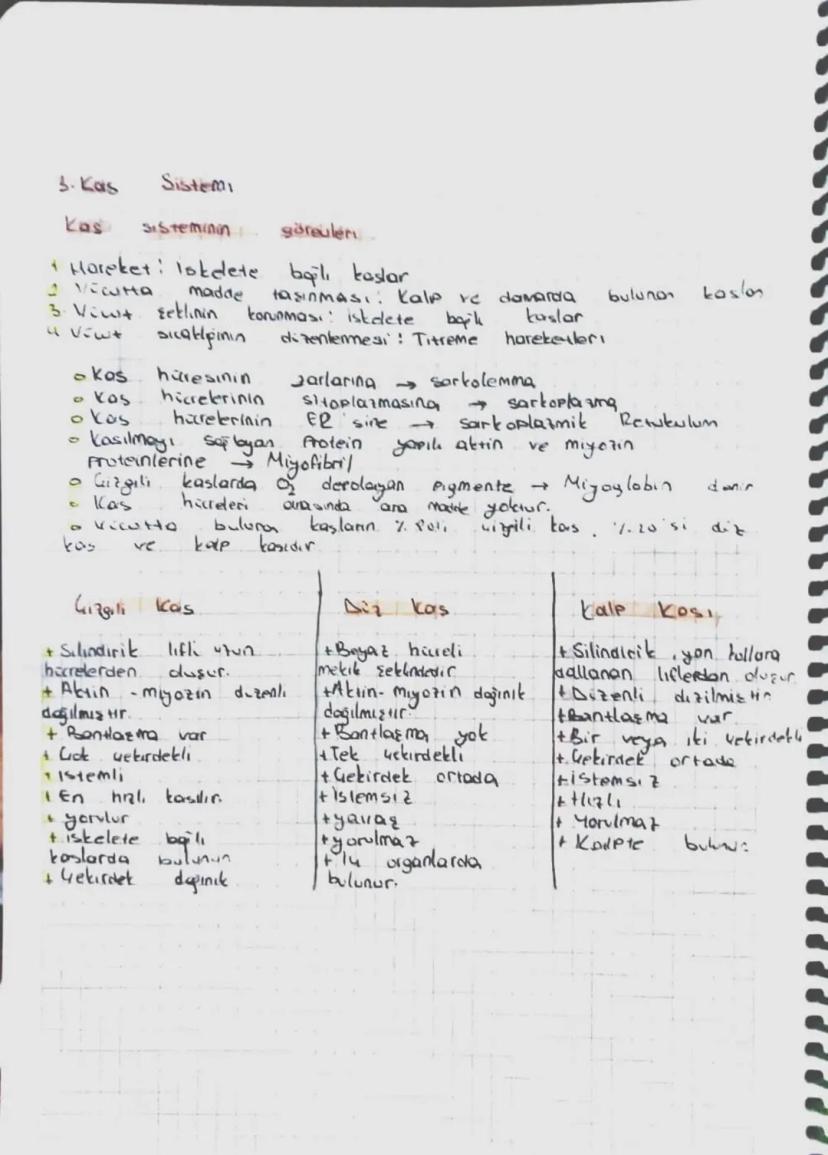 3. Kas Sistemi
Kas sisteminin görevleri
1 Hareket: İskelete bağlı kaslar
2 Vücutta madde taşınması: Kalp ve damarda bulunan kaslar
3. Vücut şeklinin korunması: iskelete bağlı kaslar
4 Vücut sıcaklığının düzenlenmesi: Titreme hareketleri
o Kas hücresinin zarlarına → sarkolemma
o Kas hücrelerinin sitoplazmasına → sarkoplazma
o Kas hücrelerinin ER sine → sarkoplazmik Retukulum
o Kasılmayı sağlayan Protein yapılı aktin ve miyozin
proteinlerine → Miyofibril
o Çizgili kaslarda O₂ depolayan pigmente → Miyoglobin denir
o Kas hücreleri arasında ara madde yoktur.
o Vücutta bulunan kasların % 80'i çizgili kas, %20'si düz
kas ve kalp kasıdır
Çizgili Kas
+ Silindirik lifli uzun
hücrelerden oluşur.
+ Aktin - miyozin düzenli
dağılmıştır.
+ Bantlaşma var
+ Çok çekirdekli
+ İstemli
+ En hızlı kasılır.
+ yorulur
+ iskelete bağlı
kaslarda bulunur
+ Çekirdek dağınık
Düz Kas
+ Beyaz hücreli
mekik şeklindedir
+ Aktin- miyozin dağınık
dağılmıştır.
+ Bantlaşma yok
+ Tek çekirdekli
+ Çekirdek ortada
+ İstemsiz
+ yavaş
+ yorulmaz
+ İç organlarda
bulunur.
Kalp Kası
+ Silindirik, yan kollara
dallanan liflerden oluşur
+ Düzenli dizilmiştir
+ Bantlaşma var
+ Bir veya iki çekirdekli
+ Çekirdek ortada
+ istemsiz
+ Hızlı
+ Yorulmaz
+ Kalpte bulunur